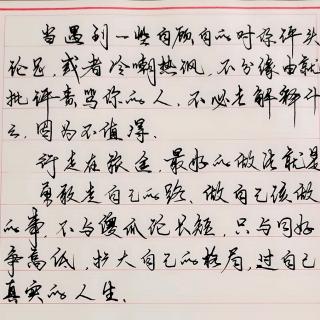 当遇到一些自顾自的对你评头
论足，或者冷嘲热讽，不分缘由就
批评责骂你的人，不必去解释什
么，因为不值得。
行走在旅途，最好的做法就是
勇敢走自己的路，做自己该做
的事，不与傻瓜论长短，只与同好
争高低，扩大自己的格局，过自己
真实的人生。